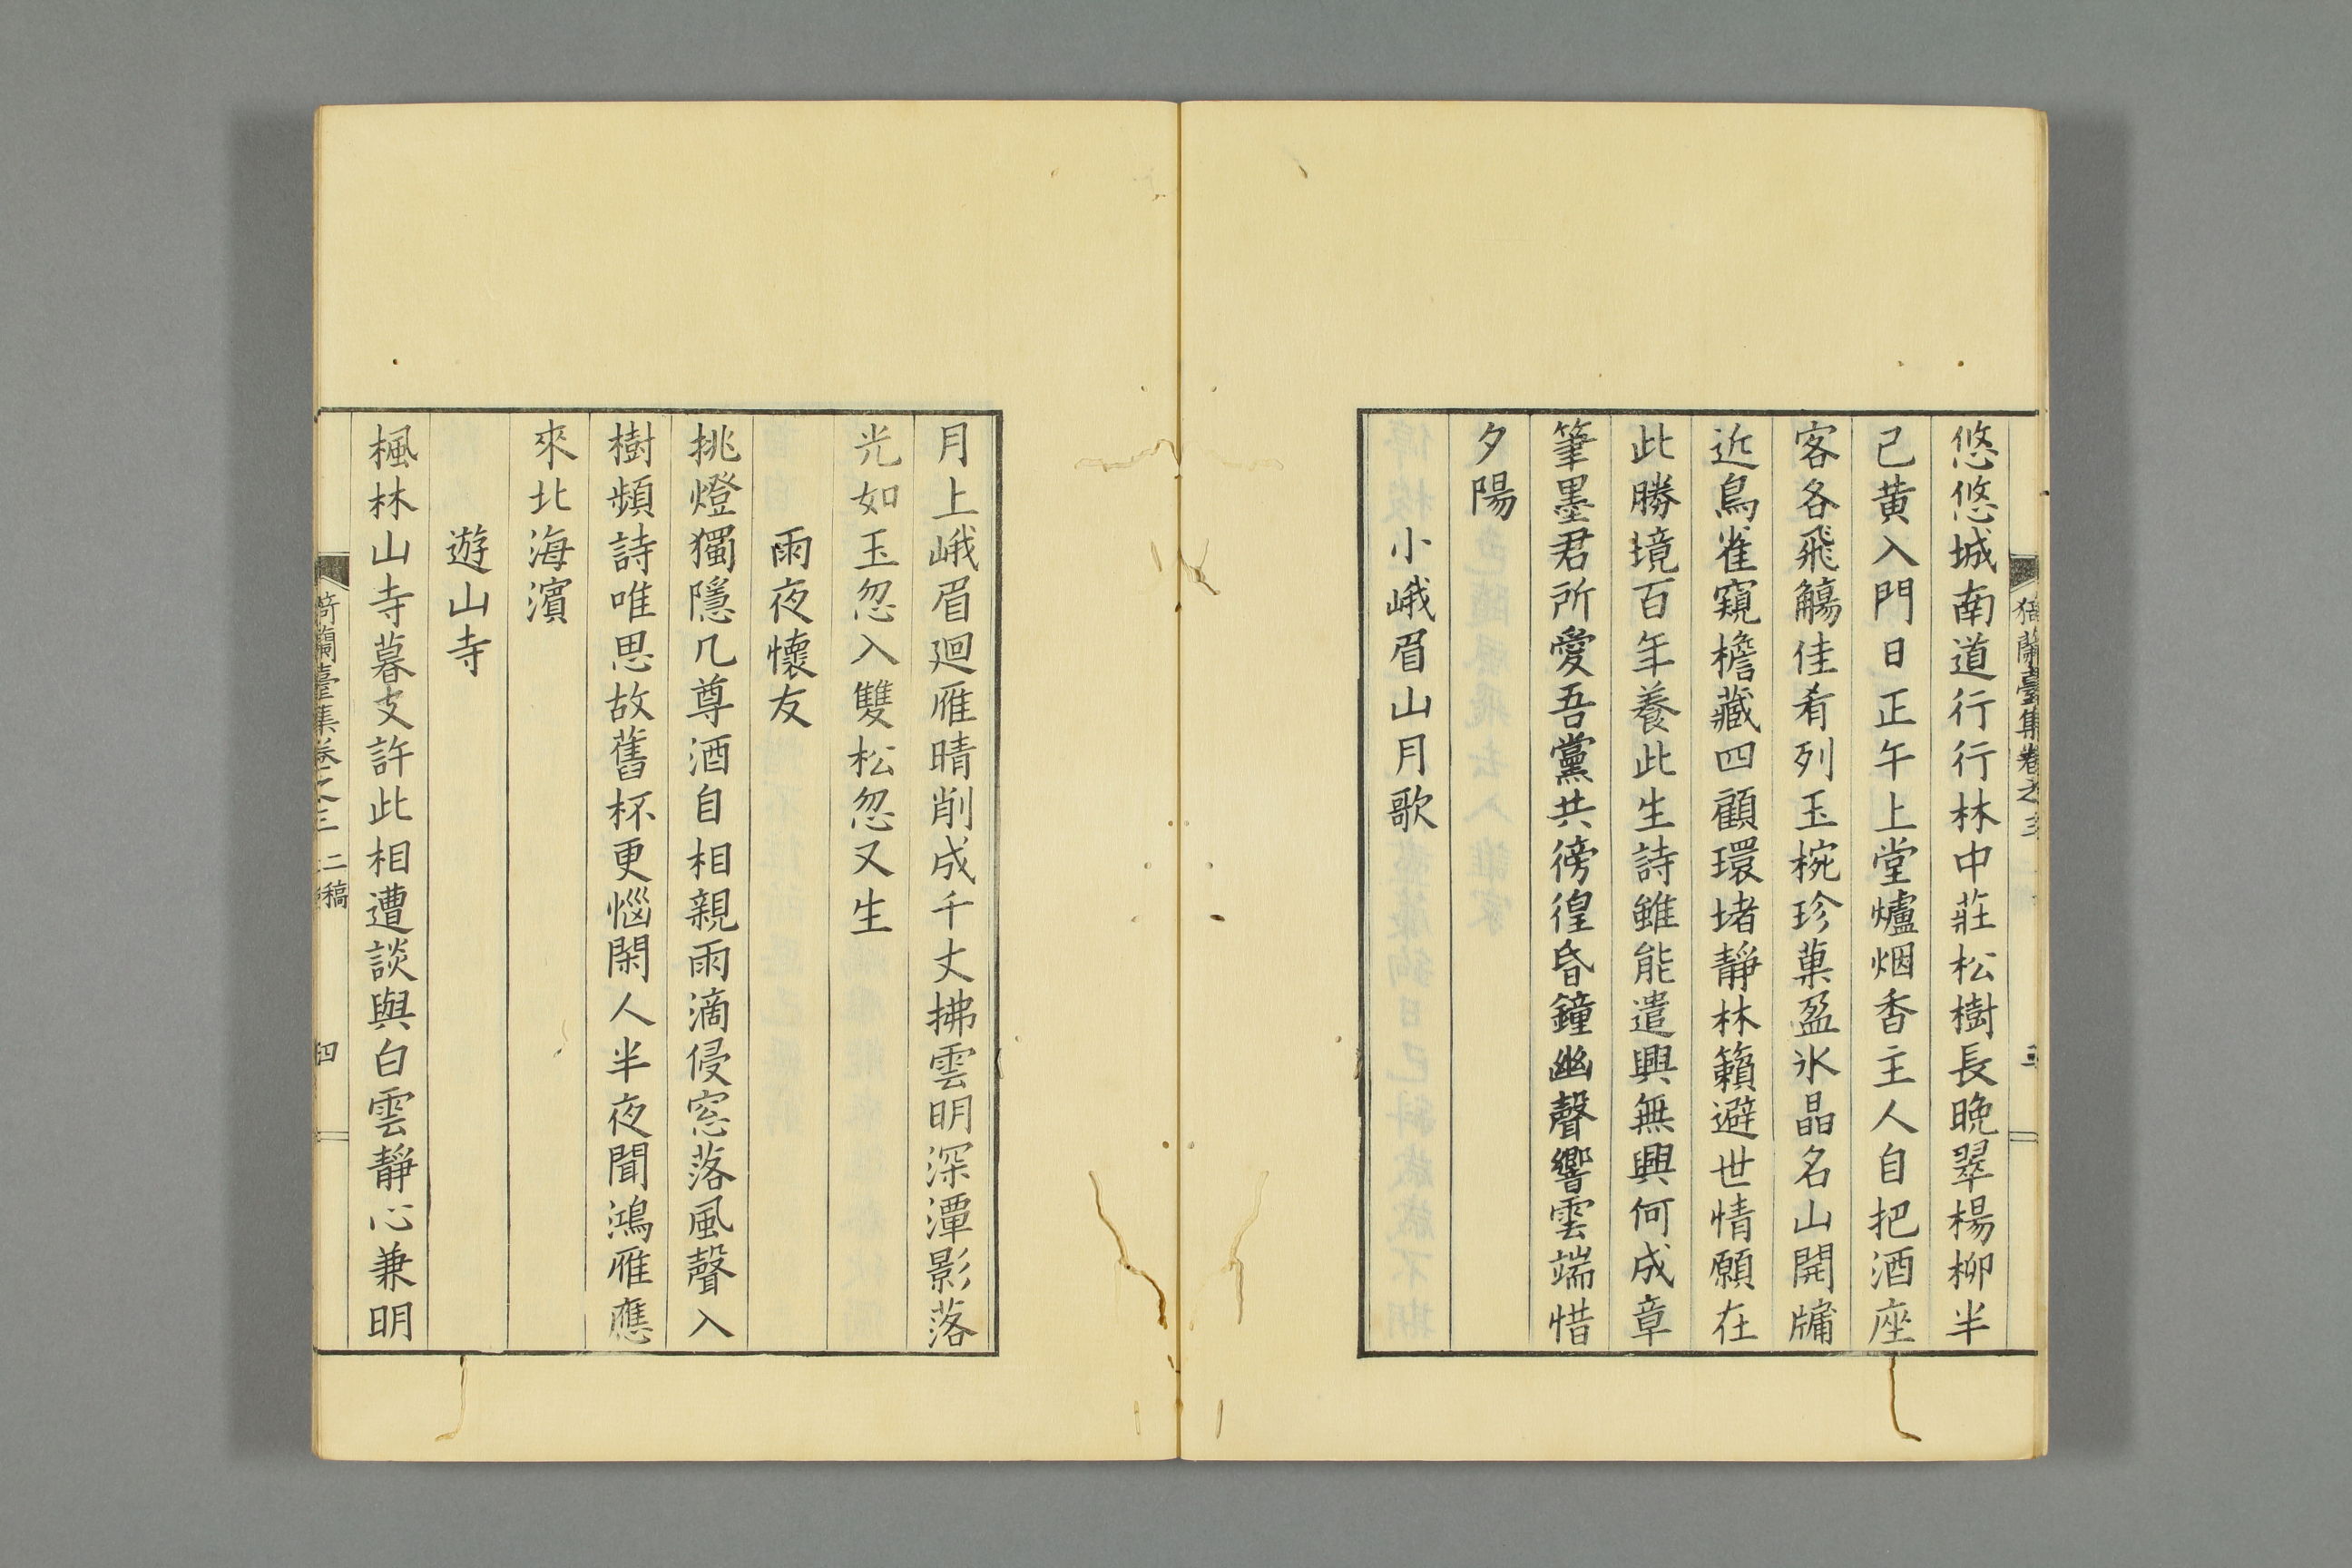 悠悠城南道行行林中莊松樹長晩翠楊柳半
已黄入門日正午上堂爐烟香主人自把酒座
客各飛觴佳肴列玉椀珍菓盈氷晶名山開牗
近鳥雀窺檐藏四顧環堵靜林籟避世情願在
此勝境百年養此生詩雖能遣興無興何成章
筆墨君所愛吾黨共徬徨昏鐘幽聲響雲端惜
夕陽
小峨眉山月歌
月上峨眉廻雁晴削成千丈拂雲明深潭影落
光如玉忽入雙松忽又生
雨夜懷友
挑燈獨隱几尊酒自相親雨滴侵窓落風聲入
樹頻詩唯思故舊杯更惱閑人半夜聞鴻雁應
來北海濱
遊山寺
楓林山寺暮支許此相遭談與白雲靜心兼明
猗蘭臺集卷之三 二稿
四